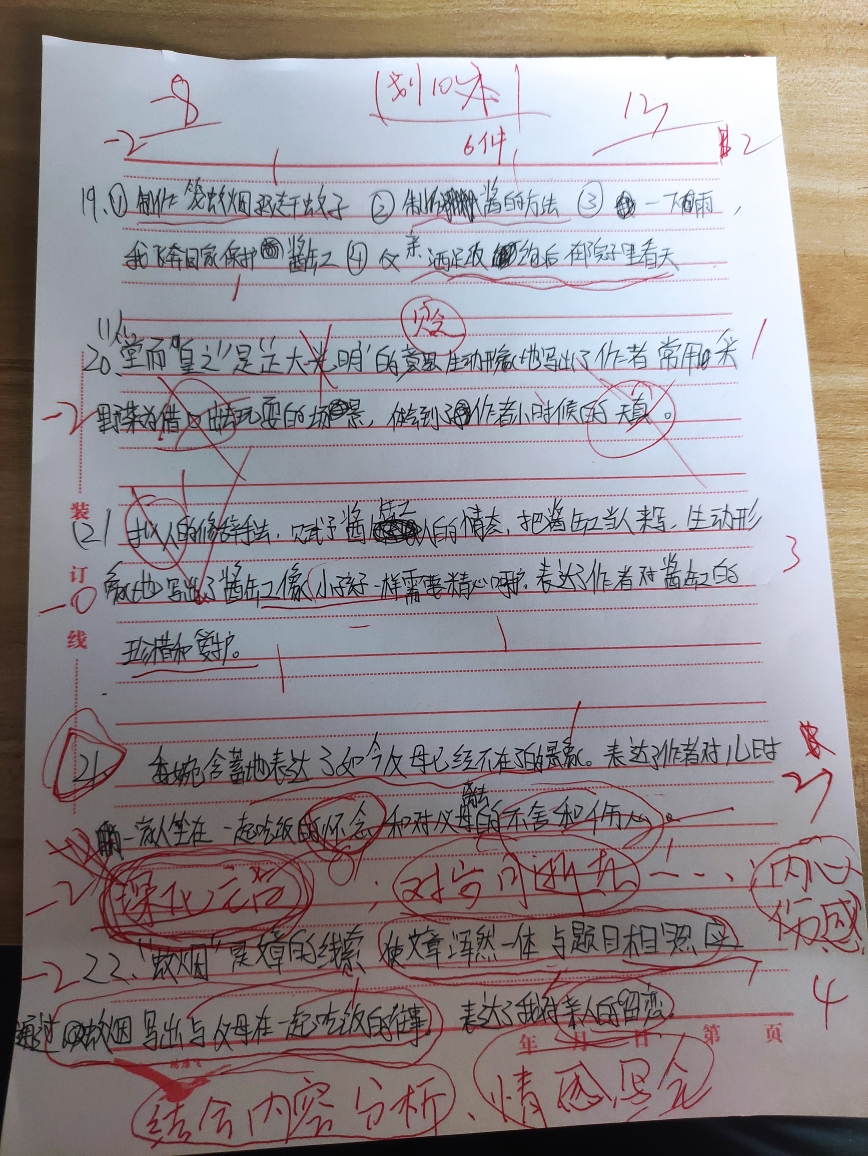 -8
划10本
12
-2
6件
2
19.① 制作 蚊烟 蚊子 ② 制作酱的方法 ③ 一下雨,
我飞奔回家保护酱缸 ④ 父亲 满足 后 在院子里看天
11人
贬
20.堂而皇之"是"正大光明"的意思 生动形象地写出了作者常用采 1
-2 野菜为借口出去玩耍的场景,体会到了作者小时候的天真。
装
(2) 拟人的修辞手法,赋予酱缸人的情态,把酱缸当人来写,生动形
订
-0 象地写出了酱缸像小孩子一样需要精心呵护,表达了作者对酱缸的 3
线
珍惜和爱护。
21. 委婉含蓄地表达了如今父母已经不在了的景象。表达了作者对儿时 2
一家人坐在一起吃饭的怀念 和对父母离去的不舍和伤心。
-2 深化 ; 对 …… 内心
伤感
-2 22.“蚊烟”是文章的线索 使文章浑然一体 与题目相照应
通过蚊烟写出与父母在一起吃饭的往事。表达了我对亲人的留恋。 4
年 月 日 第 页
结合内容分析、情感